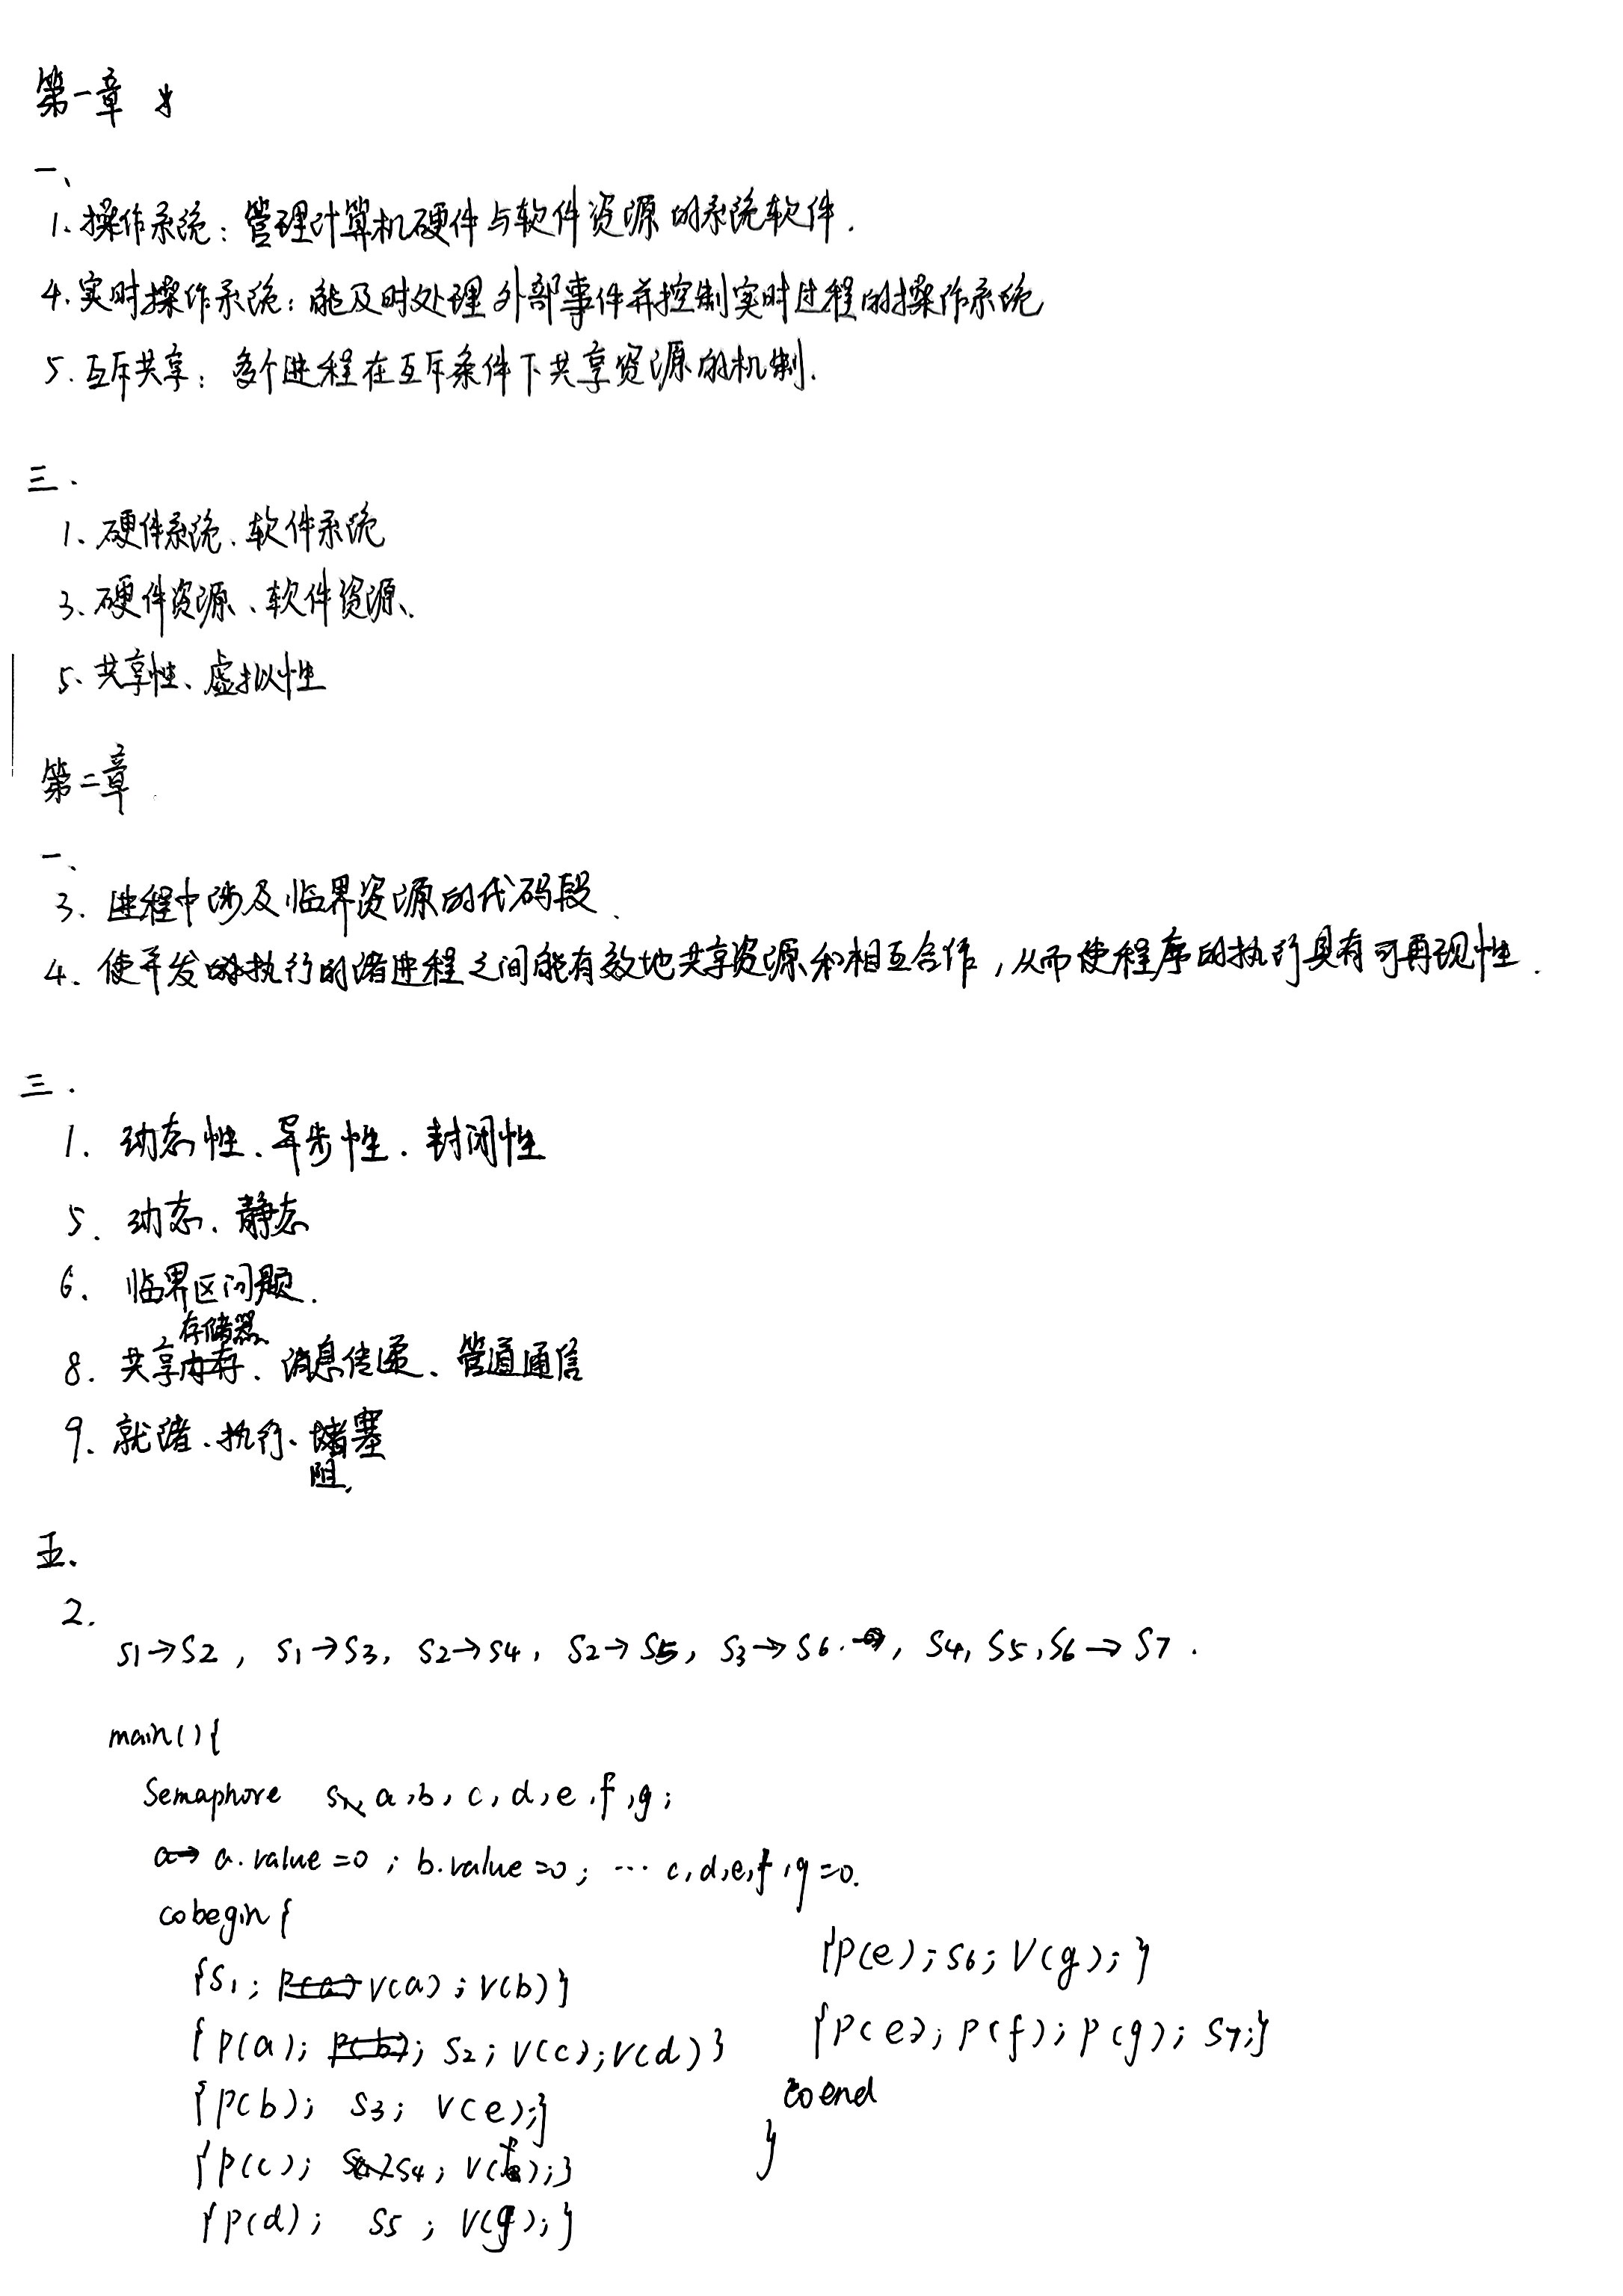 第一章
一、
1. 操作系统：管理计算机硬件与软件资源的系统软件.
4. 实时操作系统：能及时处理外部事件并控制实时过程的操作系统
5. 互斥共享：多个进程在互斥条件下共享资源的机制.
三.
1. 硬件系统、软件系统
3. 硬件资源、软件资源、
5. 共享性、虚拟性
第二章
一、
3. 进程中涉及临界资源的代码段、
4. 使并发的执行的诸进程之间能有效地共享资源和相互合作，从而使程序的执行具有可再现性.
三.
1. 动态性、异步性. 封闭性
5. 动态、静态
6. 临界区问题.
存储器
8. 共享内存、消息传递、管道通信
9. 就绪、执行、堵塞
阻
五、
2.
S1→S2, S1→S3, S2→S4, S2→S5, S3→S6, S4, S5, S6→S7.
main(){
Semaphore a,b,c,d,e,f,g;
a.value=0; b.value=0; … c,d,e,f,g=0.
cobegin{
{S1; V(a); V(b)}
{P(a); S2; V(c); V(d)}
{P(b); S3; V(e);}
{P(c); S4; V(f);}
{P(d); S5; V(g);}
{P(e); S6; V(g);}
{P(e); P(f); P(g); S7;}
coend
}